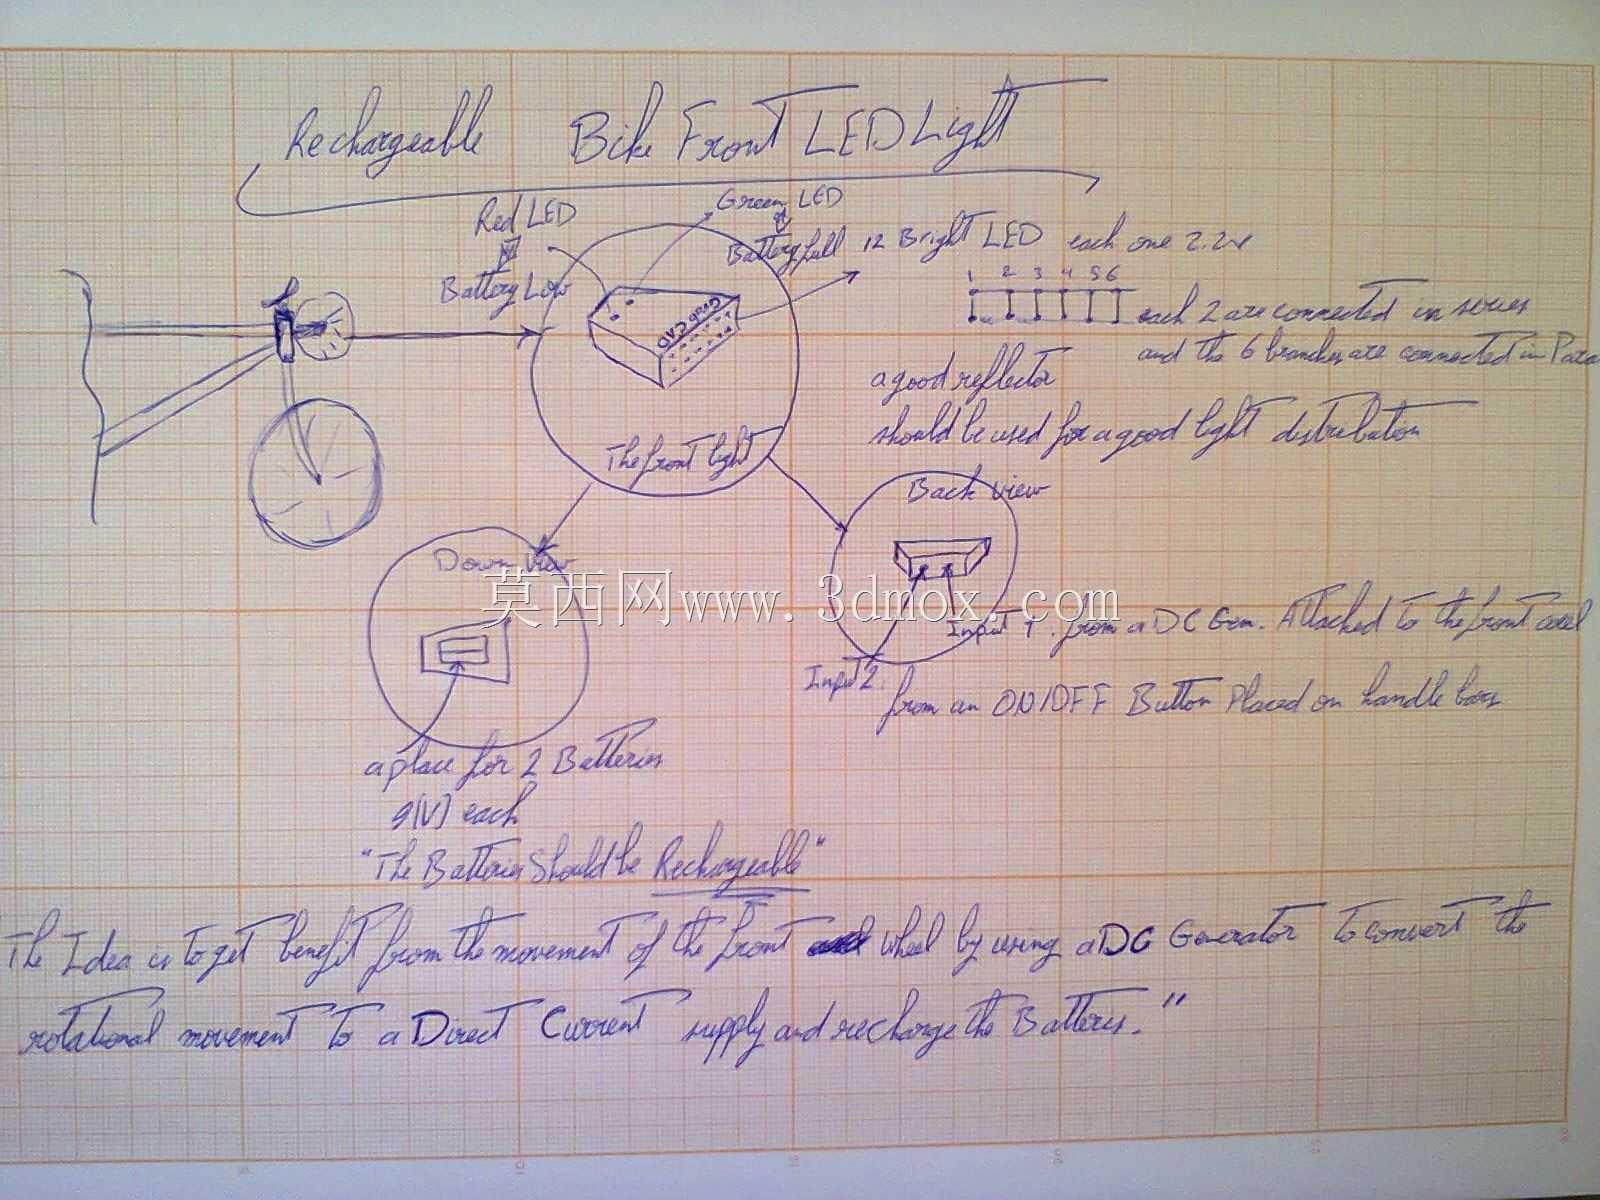 Rechargeable Bike Front LED Light
Red LED
Battery Low
Green LED
Battery full
12 Bright LED each one 2.2v
1 2 3 4 5 6
each 2 are connected in series
and the 6 branches are connected in Para
GrabCAD
a good reflector
should be used for a good light distribution
The front light
Back view
Down View
莫西网www.3dmox.com
Input 1. from a DC Gen. Attached to the front
Input 2.
from an ON/OFF Button Placed on handle bars
a place for 2 Batteries
9(V) each
"The Batteries Should be Rechargeable"
The Idea is to get benefit from the movement of the front wheel by using a DC Generator to convert the
rotational movement to a Direct Current supply and recharge the Batterys."
5 10 15 20 25 30